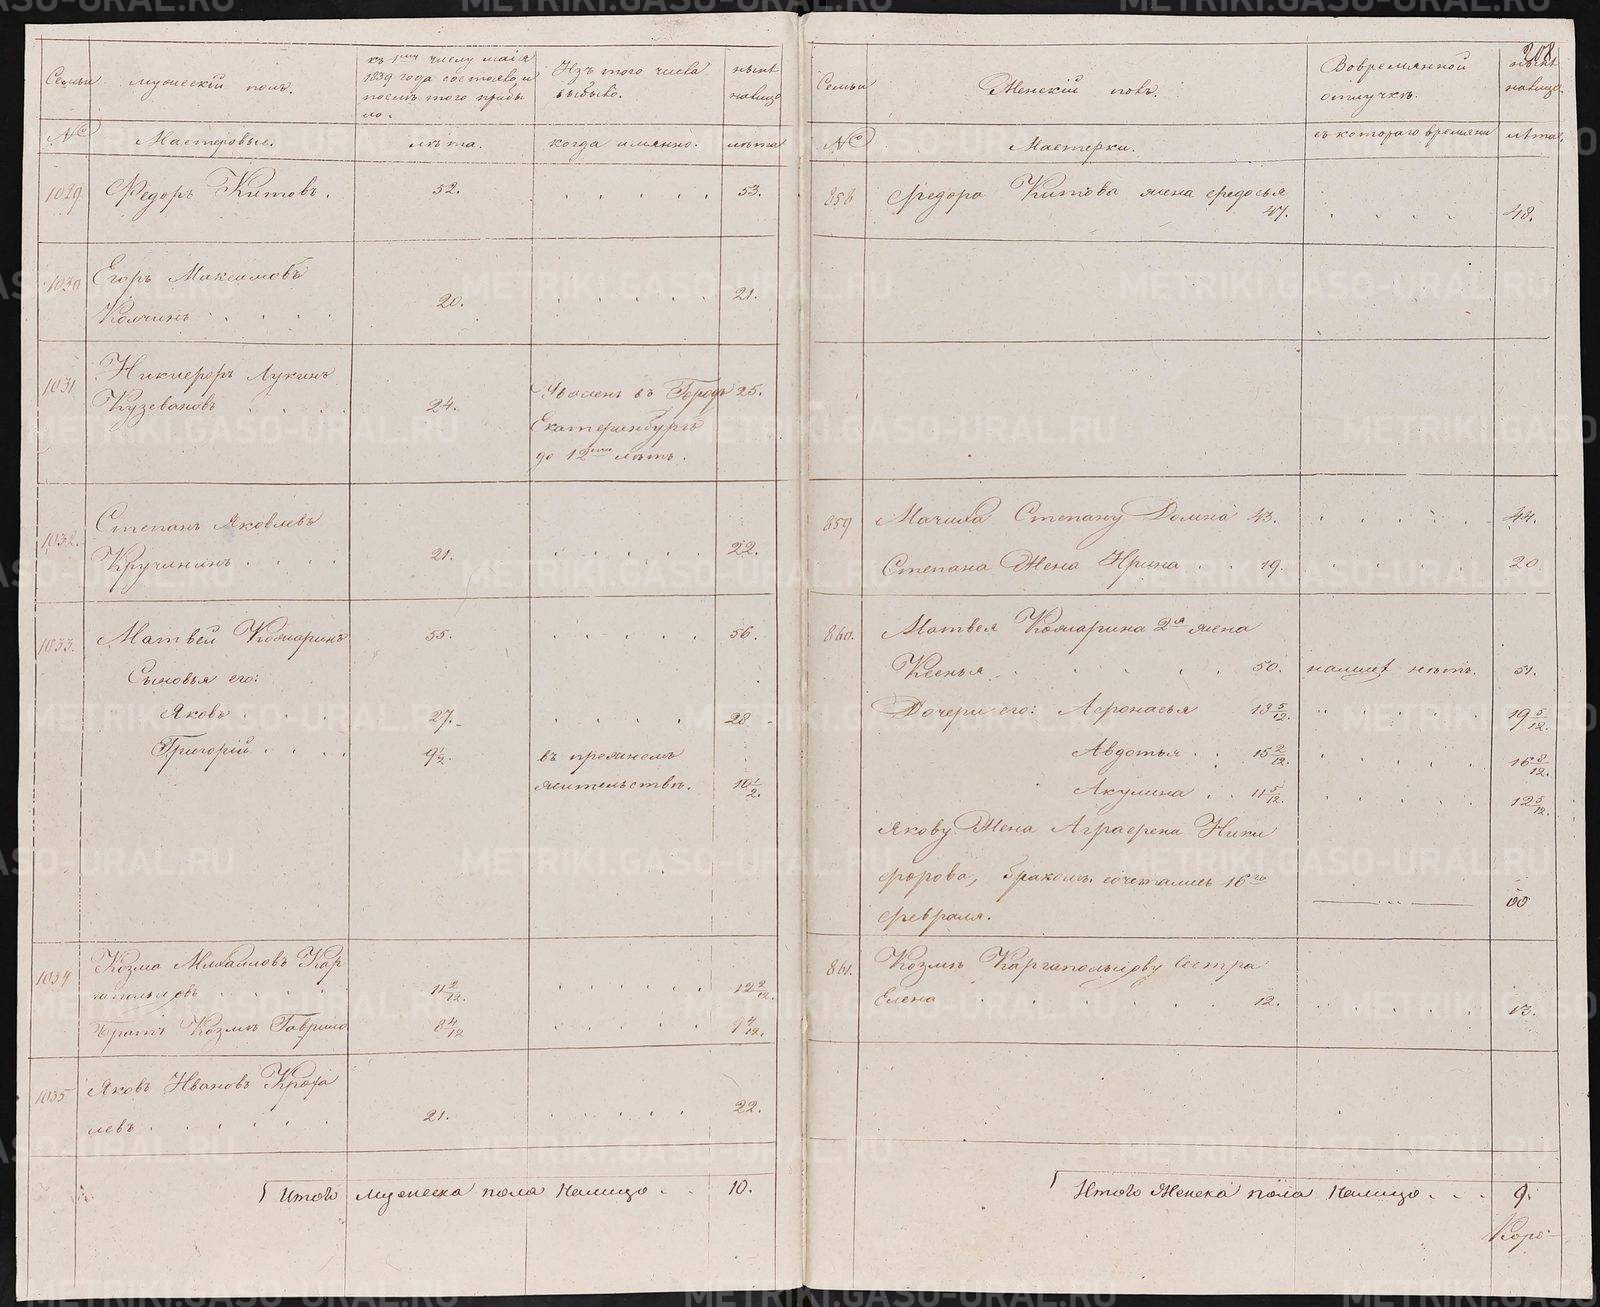 208
Семьи
мужескій полъ.
къ 1му числу маія
1839 года состояло и
послѣ того прибы
ло.
Изъ того числа
выбыло.
нынѣ
налицо
№
Мастеровые.
лѣта.
когда имянно.
лѣта
1029
Федоръ Китовъ.
52.
53.
1030
Егоръ Максимовъ
Колчинъ
20.
21.
1031
Никифоръ Лукинъ
Кузевановъ
24.
Уволенъ въ Городъ
25.
Екатеринбургъ
до 12ти лѣтъ.
1032.
Степанъ Яковлевъ
Кручининъ
21.
22.
1033.
Матвей Комаринъ
55.
56.
Сыновья его:
Яковъ
27.
28
Григорій
9 1/2.
въ прежнемъ
жительствѣ.
10 1/2.
1034
Козма Михайловъ Кар
гапольцовъ
11 2/12.
12 2/12.
Братъ Козмѣ Гаврило
8 4/12
9 4/12.
1035
Яковъ Ивановъ Крота
левъ
21.
22.
Итого мужеска пола налицо
10.
Семьи
Женскій полъ.
Вовремянной
отлучкѣ.
нынѣ
налицо.
№
Мастерки.
съ котораго времяни
лѣта.
858
Федора Китова жена Федосья
47.
48.
859
Мачиха Степану Домна 43.
44.
Степана Жена Ирина
19.
20
860.
Матвея Комарина 2я жена
Ксенья
50.
налице нѣтъ.
51.
Дочери его: Афонасья
18 5/12.
19 5/12.
Авдотья
15 2/12.
16 8/12.
Акулина
11 5/12.
12 5/12.
Якову Жена Аграфена Ники
форова, бракомъ сочетались 16го
00
февраля.
861.
Козмѣ Каргапольцову Сестра
Елена
12.
13.
Итого Женска пола налицо
9.
Коро-
METRIKI.GASO-URAL.RU